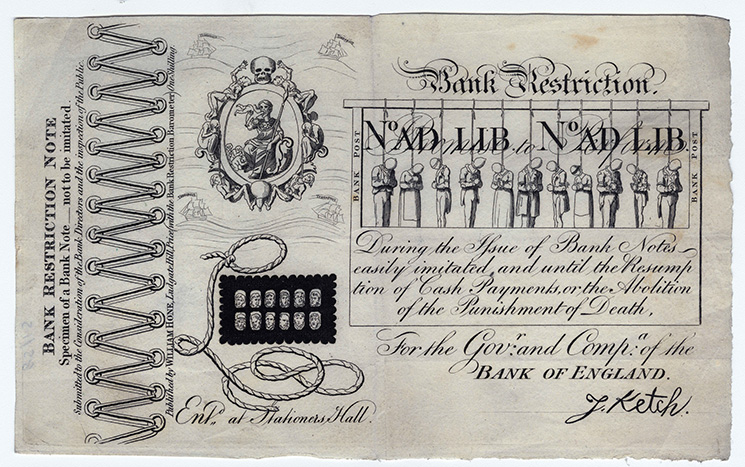 BANK RESTRICTION NOTE
Specimen of a Bank Note — not to be imitated.
Submitted to the Consideration of the Bank Directors and the inspection of the Public.
Published by WILLIAM HONE, Ludgate Hill, Price with the Bank Restriction Barometer, One Shilling.
Entd. at Stationers Hall.
Bank Restriction.
BANK POST
No. AD LIB. No. AD LIB
BANK POST
During the Issue of Bank Notes
easily imitated, and until the Resump
tion of Cash Payments, or the Abolition
of the Punishment of Death,
For the Govr. and Compa. of the
BANK OF ENGLAND.
J. Ketch.